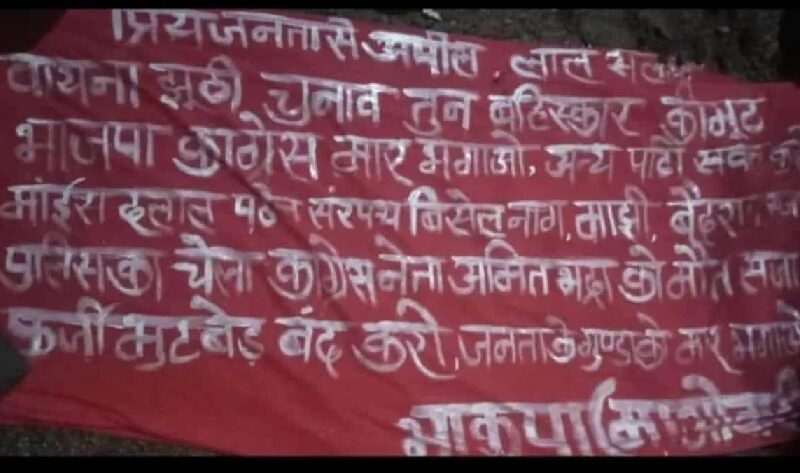 प्रियजनता से अपील, लाल सलाम
वायना झूठी चुनाव तुन बहिस्कार कीमुट
भाजपा कांग्रेस मार भगाओ, अन्य पार्टी सबक
माईरा दलाल सरपंच बिसेल नाग, माझी,
पुलिसका चेला कांग्रेस नेता अमित भद्रा को मौत सजा
फर्जी मुटबेड़ बंद करो, जनता के गुण्डा के मार भगाओ
भाकपा (माओवादी